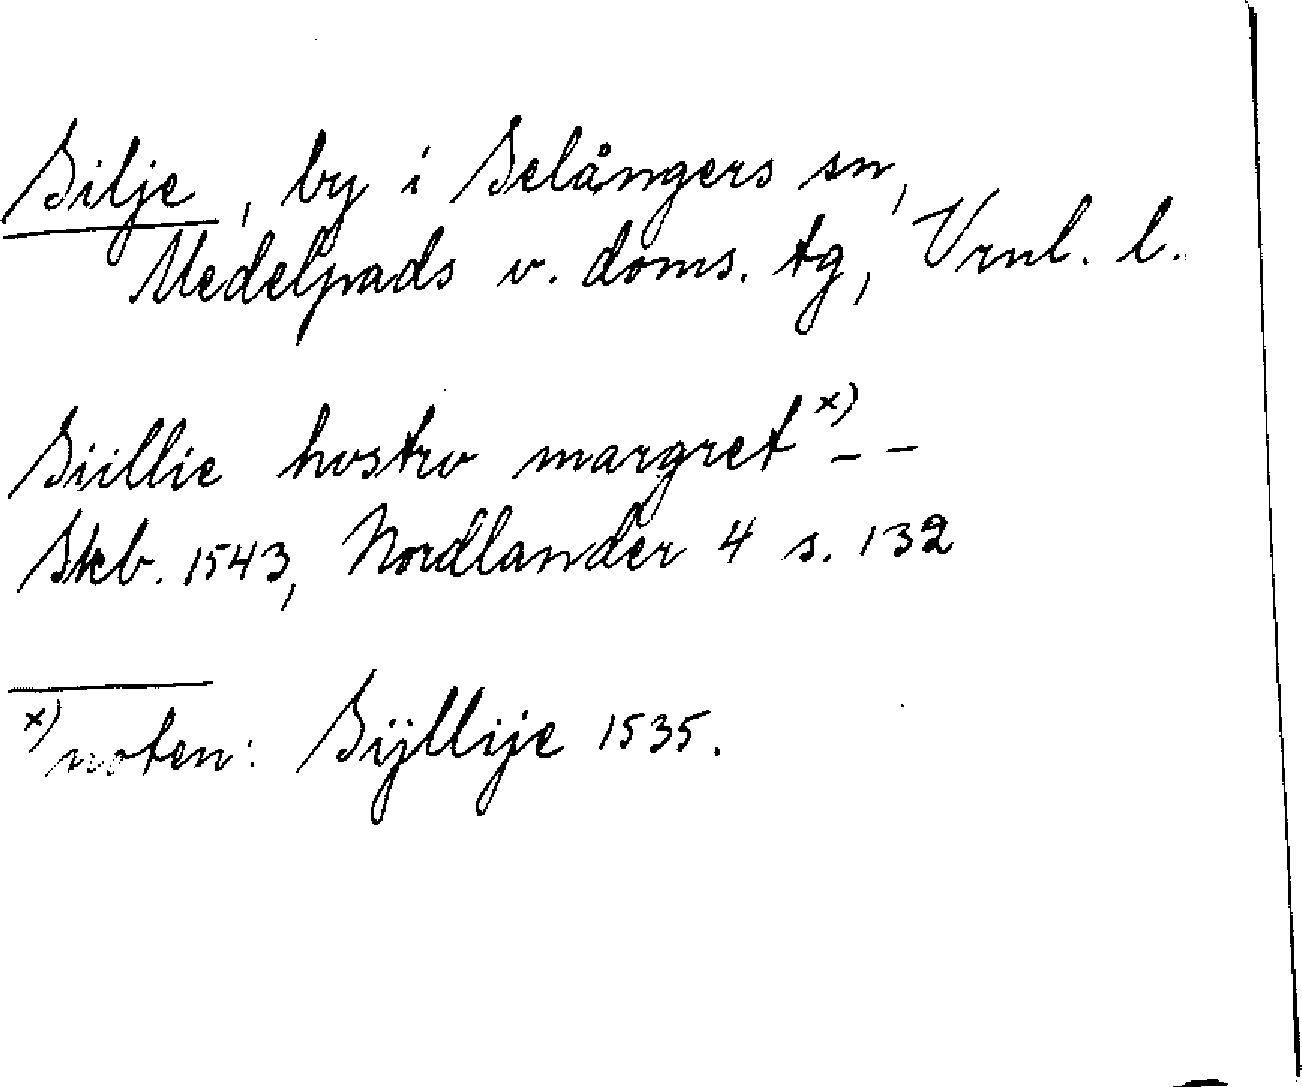 Silje, by i Selångers sn,
Medelpads v. doms. tg, Vrnl. l.
Siillie hvstrv margret x) - -
Skb. 1543, Nordlander 4 s. 132
x) noten: Sÿllije 1535.